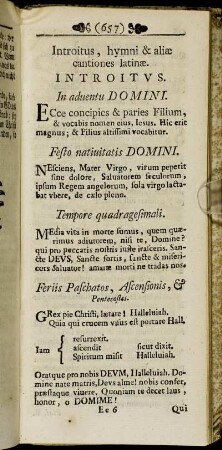 (657)
Introitus, hymni & aliæ
cantiones latinæ.
INTROITVS.
In aduentu DOMINI.
ECce concipies & paries Filium,
& vocabis nomen eius, Iesus. Hic erit
magnus; & Filius altissimi vocabitur.
Festo natiuitatis DOMINI.
NEsciens, Mater Virgo, virum peperit
sine dolore, Saluatorem seculorum,
ipsum Regem angelorum, sola virgo lacta-
bat vbere, de cælo pleno.
Tempore quadragesimali.
MEdia vita in morte sumus, quem quæ-
rimus adiutorem, nisi te, Domine?
qui pro peccatis nostris iuste irasceris. San-
cte DEVS, Sancte fortis, sancte & miseri-
cors Saluator! amaræ morti ne tradas nos.
Feriis Paschatos, Ascensionis, &
Pentecostes.
GRex pie Christi, lætare! Halleluiah.
Quia qui crucem visus est portare Hall.
resurrexit.
Iam ascendit sicut dixit.
Spiritum misit Halleluiah.
Oratque pro nobis DEVM, Halleluiah. Do-
mine nate matris, Deus alme! nobis confer,
præstaque viuere. Quoniam te decet laus,
honor, o DOMIME!
Ee 6 Qui